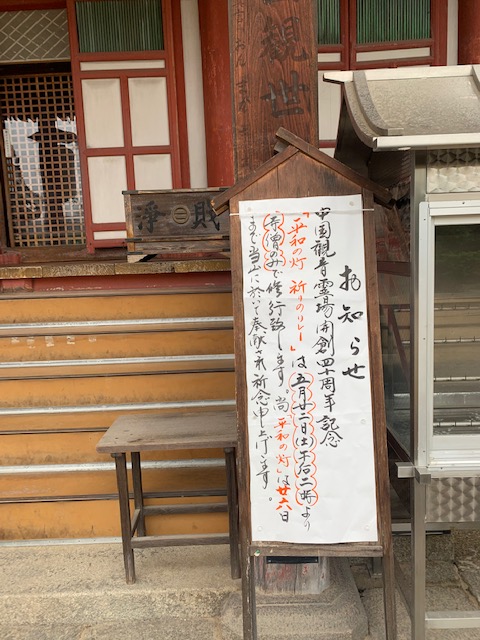 お知らせ
中国観音霊場開創四十周年記念
「平和の灯 祈りのリレー」は五月廿二日(土)午后二時より
寺僧のみで修行致します。尚「平和の灯」は廿六日
まで当山に於いて奉献され祈念申上げます。
観世
浄財